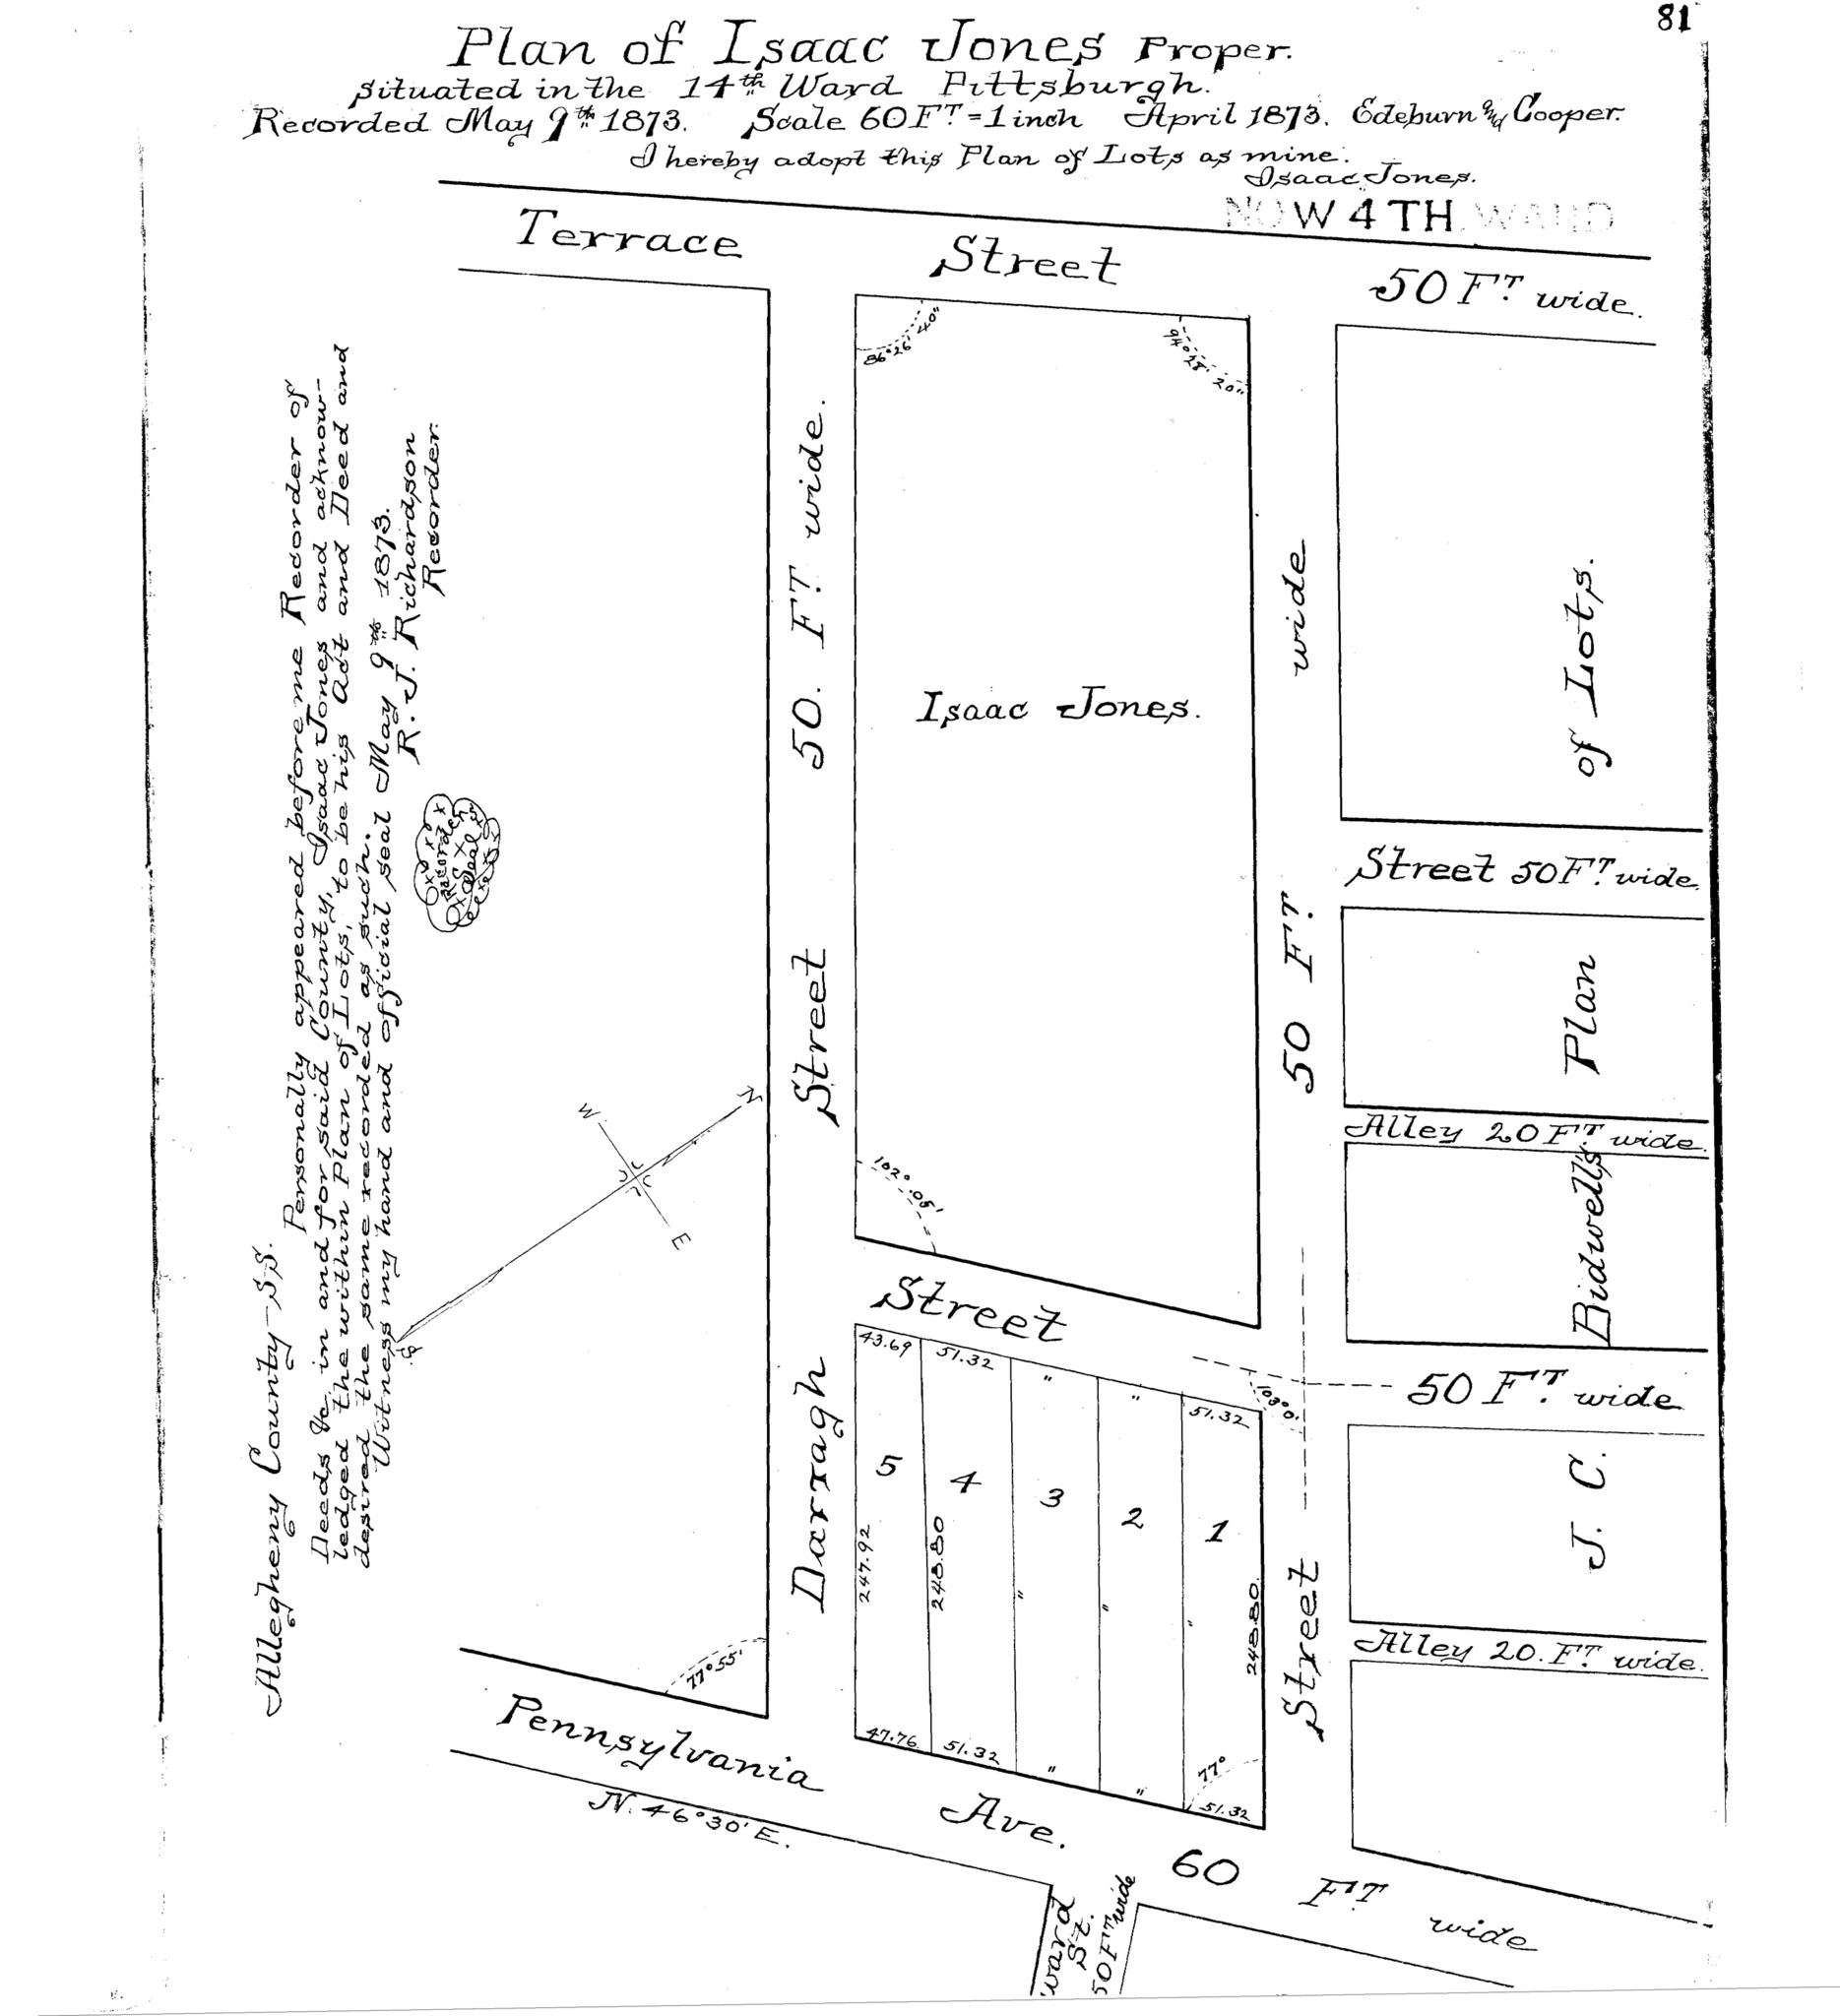 81
Plan of Isaac Jones Proper.
situated in the 14th Ward Pittsburgh.
Recorded May 9th 1873. Scale 60 FT. = 1 inch April 1873. Edeburn and Cooper.
I hereby adopt this Plan of Lots as mine.
Isaac Jones.
NOW 4TH WARD
Terrace Street 50 FT. wide.
86°26' 40"
94°28' 20"
Allegheny County SS.
Personally appeared before me Recorder of
Deeds &c in and for said County, Isaac Jones and acknow-
ledged the within Plan of Lots, to be his Act and Deed and
desired the same recorded as such.
Witness my hand and official seal May 9th 1873.
R. J. Richardson
Recorder.
Recorder
Seal
Darragh Street 50. FT. wide.
Isaac Jones.
102°.05'
Street 50 FT. wide
J. C. Bidwell's Plan of Lots.
Street 50 FT. wide.
Alley 20 FT. wide.
W
N
E
S.
Street 50 FT. wide
103°0'
43.69 51.32 " " 51.32
5 4 3 2 1
247.92 248.80 " " " 248.80
47.76 51.32 " " 51.32
77°
77°55'
Alley 20. FT. wide.
Pennsylvania Ave. 60 FT wide
N. 46°30' E.
Ward St.
50 FT wide